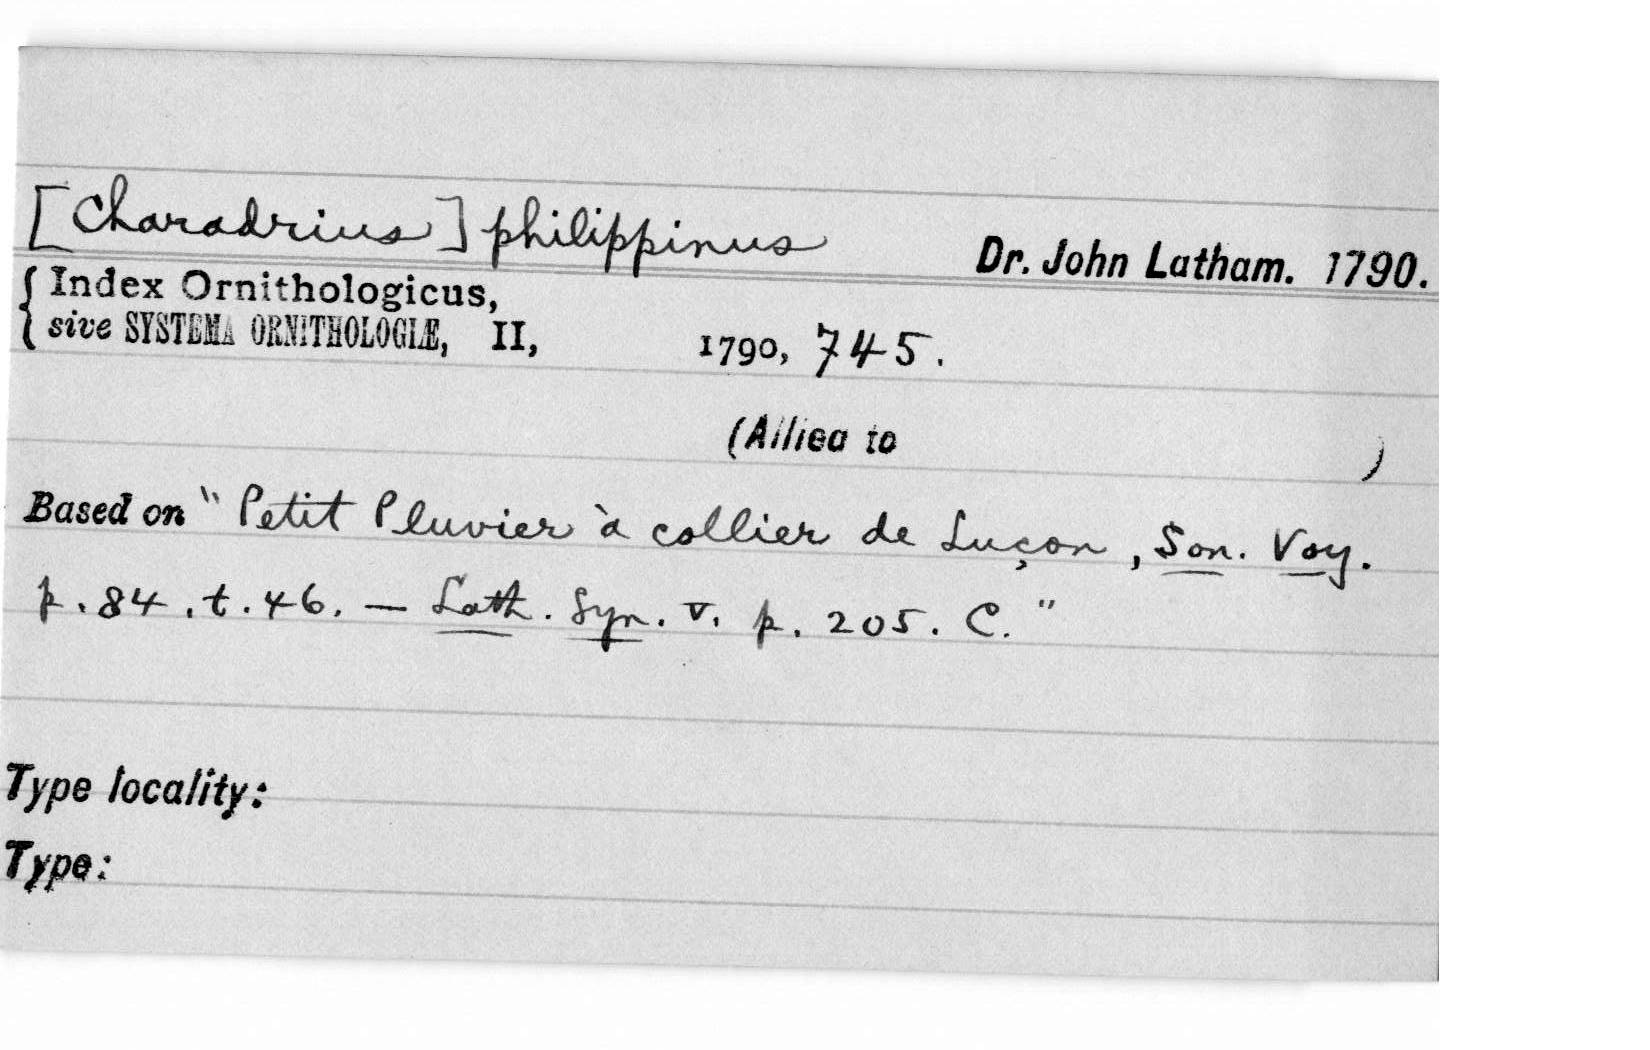 [Charadrius] philippinus Dr. John Latham. 1790.
{ Index Ornithologicus,
sive SYSTEMA ORNITHOLOGIÆ, II, 1790, 745.
(Allied to )
Based on "Petit Pluvier à collier de Luçon, Son. Voy.
p. 84. t. 46. — Lath. Syn. v. p. 205. C."
Type locality:
Type: